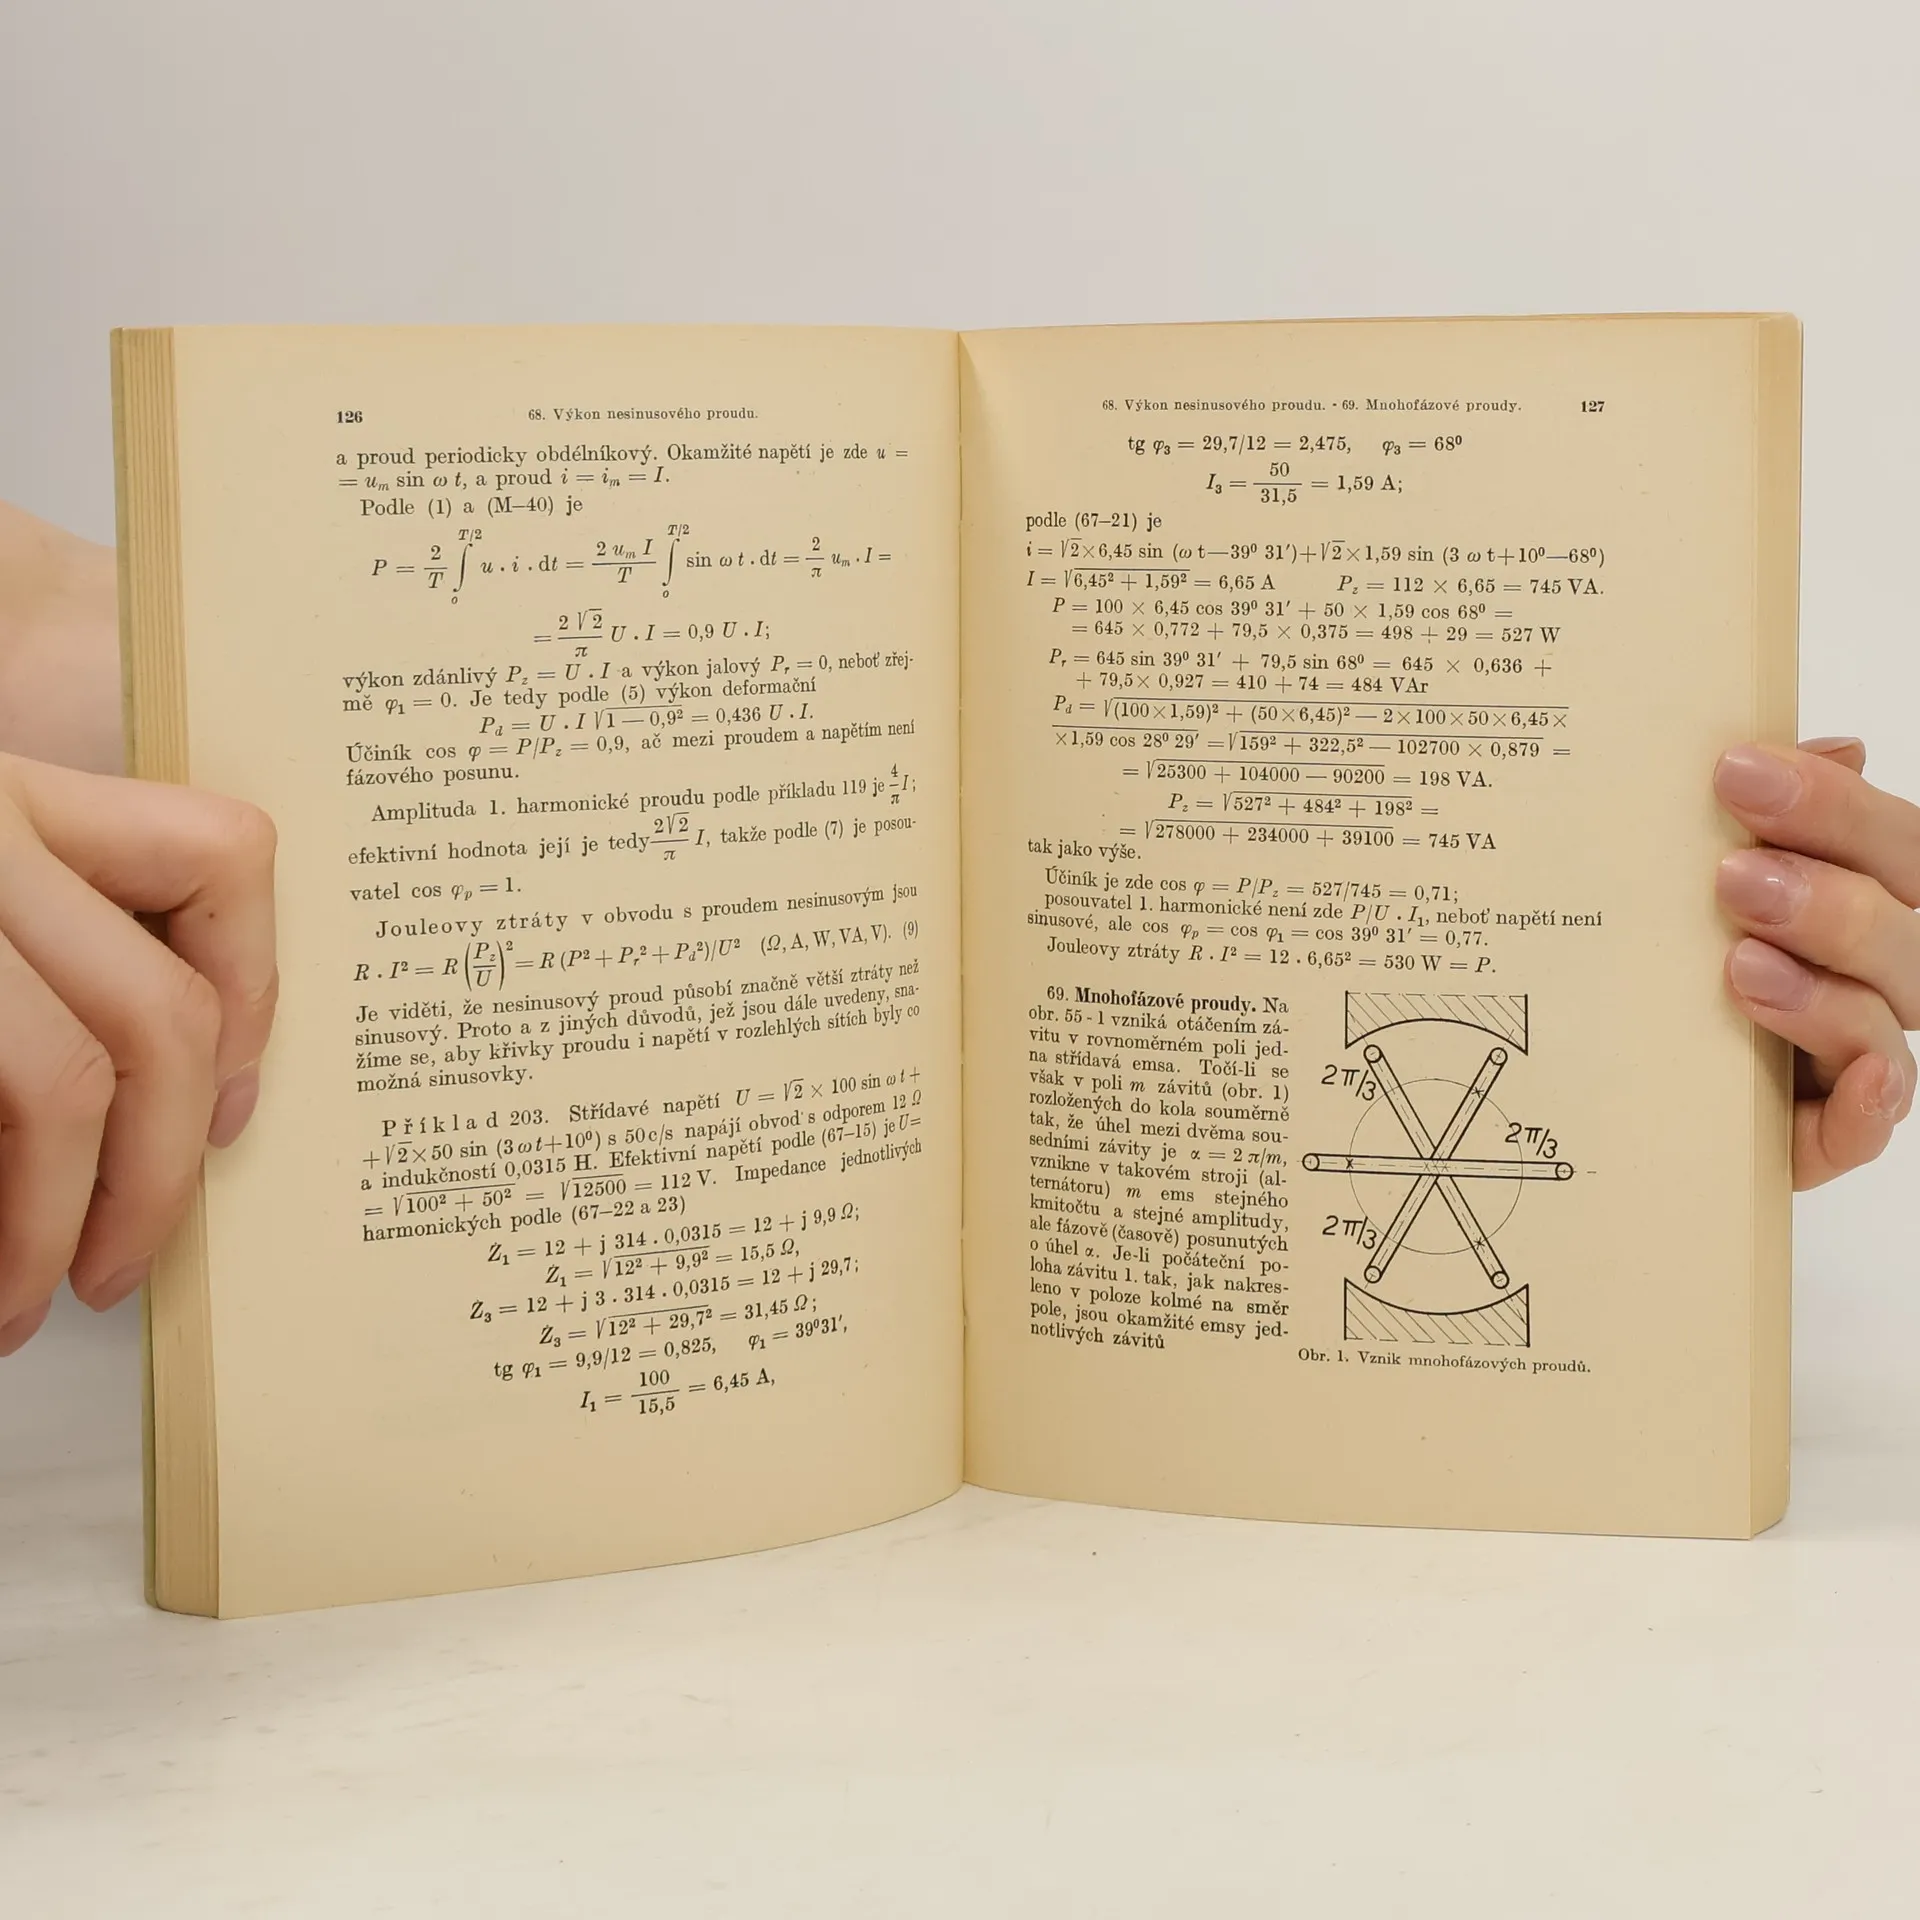 126 68. Výkon nesinusového proudu.
a proud periodicky obdélníkový. Okamžité napětí je zde u =
= uₘ sin ω t, a proud i = iₘ = I.
Podle (1) a (M–40) je
P = 2/T ∫₀^{T/2} u . i . dt = 2 uₘ I/T ∫₀^{T/2} sin ω t . dt = 2/π uₘ . I =
= 2 √2/π U . I = 0,9 U . I;
výkon zdánlivý P_z = U . I a výkon jalový P_r = 0, neboť zřej-
mě φ₁ = 0. Je tedy podle (5) výkon deformační
P_d = U . I √(1 — 0,9²) = 0,436 U . I.
Účiník cos φ = P/P_z = 0,9, ač mezi proudem a napětím není
fázového posunu.
Amplituda 1. harmonické proudu podle příkladu 119 je 4/π I;
efektivní hodnota její je tedy 2√2/π I, takže podle (7) je posou-
vatel cos φ_p = 1.
Jouleovy ztráty v obvodu s proudem nesinusovým jsou
R . I² = R (P_z/U)² = R (P² + P_r² + P_d²)/U² (Ω, A, W, VA, V). (9)
Je viděti, že nesinusový proud působí značně větší ztráty než
sinusový. Proto a z jiných důvodů, jež jsou dále uvedeny, sna-
žíme se, aby křivky proudu i napětí v rozlehlých sítích byly co
možná sinusovky.
Příklad 203. Střídavé napětí U = √2 × 100 sin ω t +
+ √2 × 50 sin (3 ω t + 10⁰) s 50 c/s napájí obvod s odporem 12 Ω
a indukčností 0,0315 H. Efektivní napětí podle (67–15) je U =
= √(100² + 50²) = √12500 = 112 V. Impedance jednotlivých
harmonických podle (67–22 a 23)
Ż₁ = 12 + j 314 . 0,0315 = 12 + j 9,9 Ω;
Ż₁ = √(12² + 9,9²) = 15,5 Ω,
Ż₃ = 12 + j 3 . 314 . 0,0315 = 12 + j 29,7;
Ż₃ = √(12² + 29,7²) = 31,45 Ω;
tg φ₁ = 9,9/12 = 0,825, φ₁ = 39⁰31′,
I₁ = 100/15,5 = 6,45 A,
68. Výkon nesinusového proudu. - 69. Mnohofázové proudy. 127
tg φ₃ = 29,7/12 = 2,475, φ₃ = 68⁰
I₃ = 50/31,5 = 1,59 A;
podle (67–21) je
i = √2 × 6,45 sin (ω t — 39⁰ 31′) + √2 × 1,59 sin (3 ω t + 10⁰ — 68⁰)
I = √(6,45² + 1,59²) = 6,65 A P_z = 112 × 6,65 = 745 VA.
P = 100 × 6,45 cos 39⁰ 31′ + 50 × 1,59 cos 68⁰ =
= 645 × 0,772 + 79,5 × 0,375 = 498 + 29 = 527 W
P_r = 645 sin 39⁰ 31′ + 79,5 sin 68⁰ = 645 × 0,636 +
+ 79,5 × 0,927 = 410 + 74 = 484 VAr
P_d = √(100×1,59)² + (50×6,45)² — 2×100×50×6,45×
×1,59 cos 28⁰ 29′ = √(159² + 322,5² — 102700 × 0,879) =
= √(25300 + 104000 — 90200) = 198 VA.
P_z = √(527² + 484² + 198²) =
= √(278000 + 234000 + 39100) = 745 VA
tak jako výše.
Účiník je zde cos φ = P/P_z = 527/745 = 0,71;
posouvatel 1. harmonické není zde P/U . I₁, neboť napětí není
sinusové, ale cos φ_p = cos φ₁ = cos 39⁰ 31′ = 0,77.
Jouleovy ztráty R . I² = 12 . 6,65² = 530 W = P.
69. Mnohofázové proudy. Na
obr. 55 - 1 vzniká otáčením zá-
vitu v rovnoměrném poli jed-
na střídavá emsa. Točí-li se
však v poli m závitů (obr. 1)
rozložených do kola souměrně
tak, že úhel mezi dvěma sou-
sedními závity je α = 2 π/m,
vznikne v takovém stroji (al-
ternátoru) m ems stejného
kmitočtu a stejné amplitudy,
ale fázově (časově) posunutých
o úhel α. Je-li počáteční po-
loha závitu 1. tak, jak nakres-
leno v poloze kolmé na směr
pole, jsou okamžité emsy jed-
notlivých závitů
2π/3
2π/3
2π/3
Obr. 1. Vznik mnohofázových proudů.